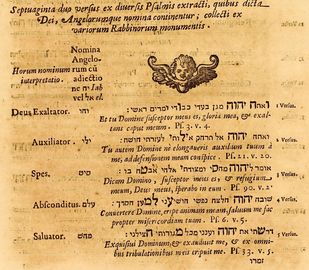 Septuaginta duo versus ex diversis Psalmis extracti, quibus dicta
Dei, Angelorumque nomina continentur; collecti ex
variorum Rabbinorum monumentis.
Nomina
Angelo-
Horum nominum rum cũ
interpretatio. adiectio
ne יה Iah
vel אל el.
Deus Exaltator. ואתה יהוה מגן בעדי כבודי ומרים ראשי: 1 Versus.
Et tu Domine susceptor meus es, gloria mea, & exal
tans caput meum. Ps. 3. v. 4.
Auxiliator. ילי ואתה יהוה אל תרחק אילותי לעזרתי חושה: 2 Versus.
Tu autem Domine nè elongaveris auxilium tuum à
me, ad defensionem meam conspice. Ps. 21. v. 20.
Spes. סיט אומר ליהוה מחסי ומצודתי אלהי אבטח בו: 3 Versus.
Dicam Domino, susceptor meus es, & refugium
meum, Deus meus, sperabo in eum. Ps. 90. v. 2.
Absconditus. עלם שובה יהוה חלצה נפשי הושיעני למען חסדך: 4 Versus.
Convertere Domine, eripe animam meam, saluum me fac
propter misericordiam tuam. Ps. 6. v. 5.
Saluator. מהש דרשתי את יהוה וענני מכל מגורותי הצילני: 5 Versus.
Exquisivi Dominum, & exaudivit me, & ex omni-
bus tribulationibus meis eripuit me. Ps. 33.
זמרו